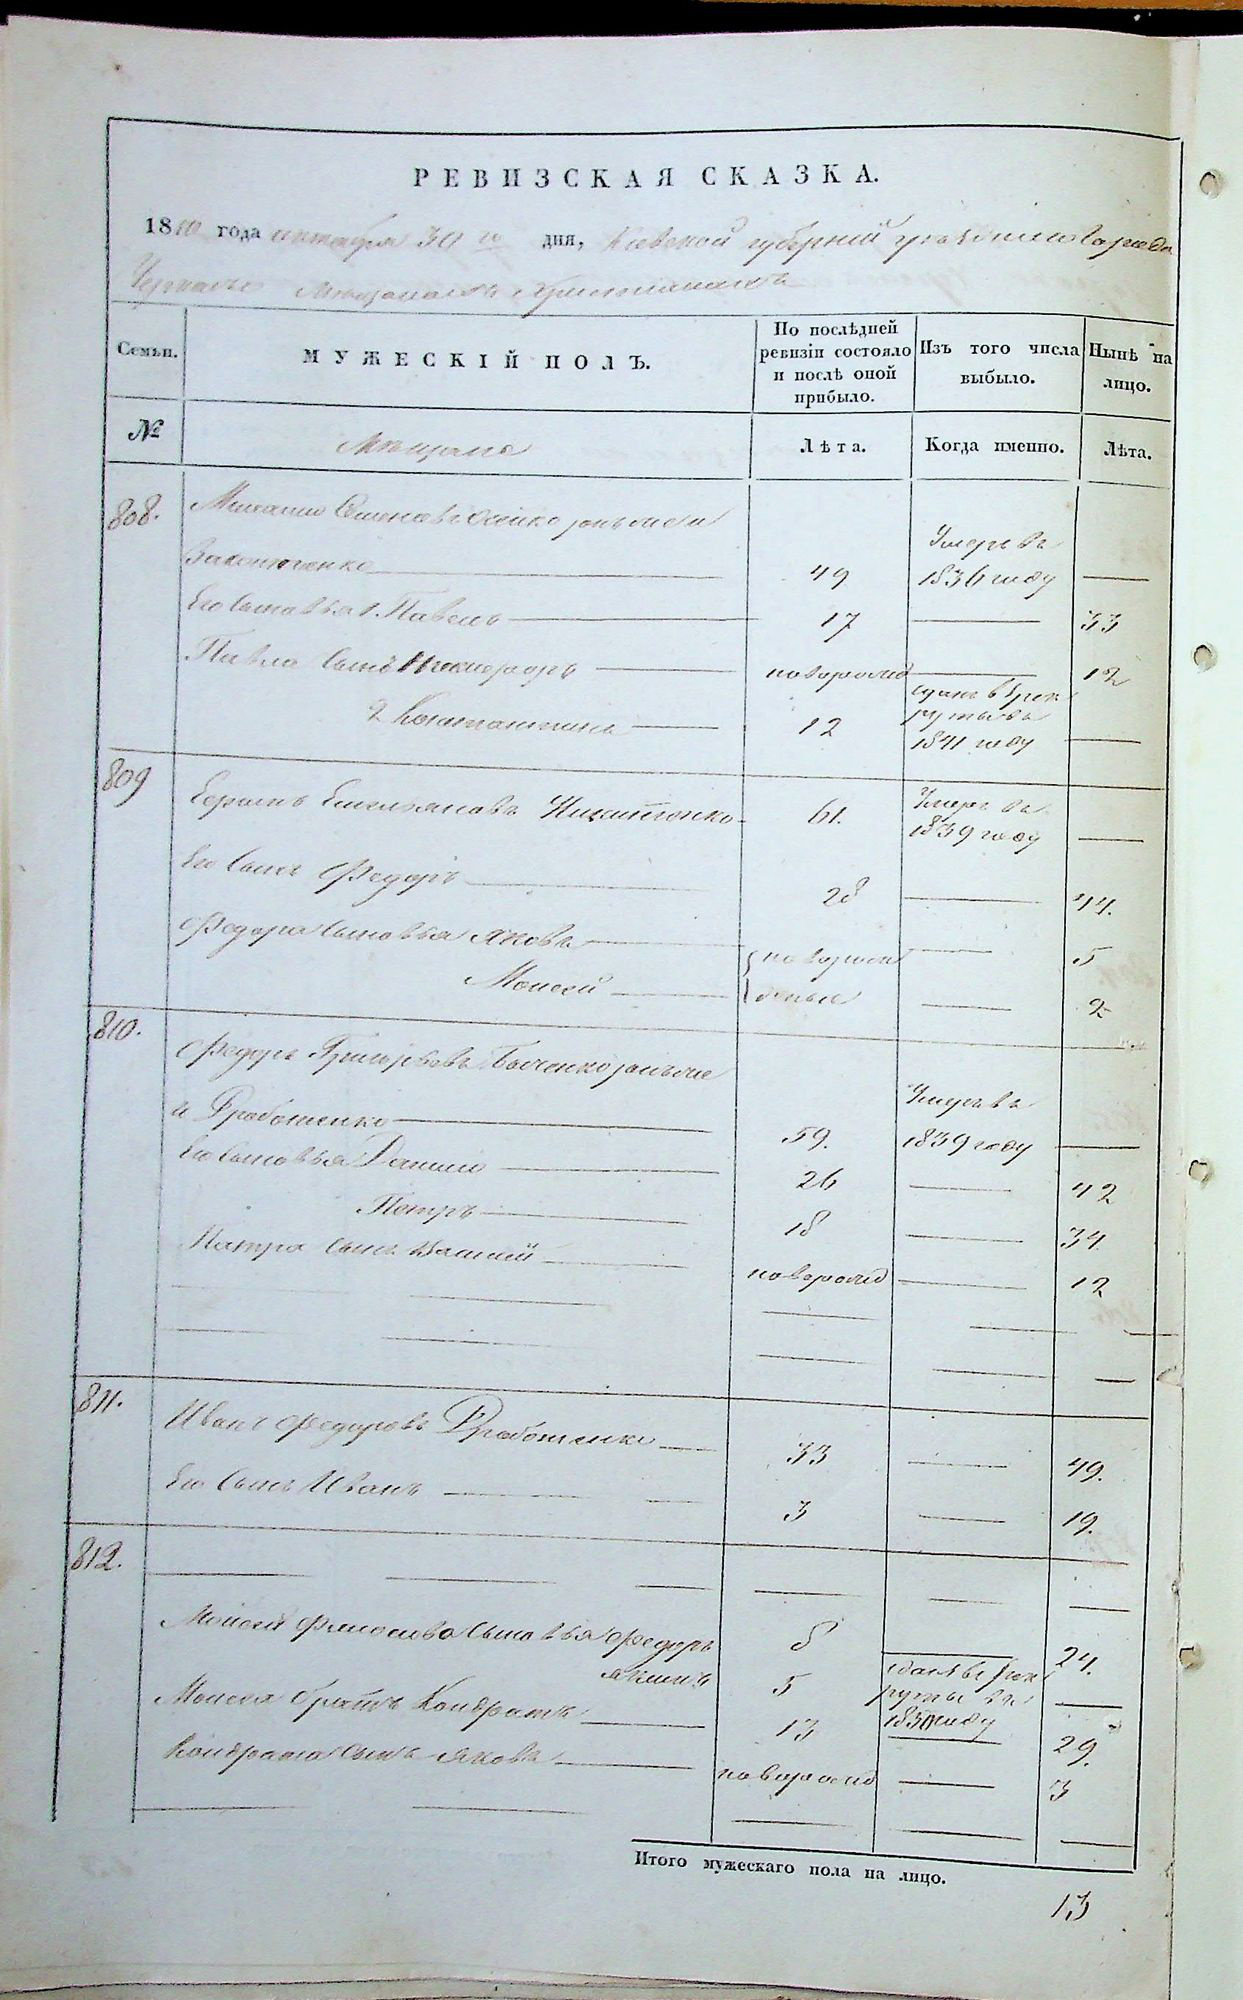 РЕВИЗСКАЯ СКАЗКА.
18 года октября 30 го дня, Киевской губернии уезднаго города
Черкасъ Мещанахъ христианахъ
Семьи. МУЖЕСКІЙ ПОЛЪ. По послѣдней ревизіи состояло и послѣ оной прибыло. Изъ того числа выбыло. Нынѣ на лицо.
№ Мещане Лѣта. Когда именно. Лѣта.
808. Семеновъ онъ же и Умеръ въ
49 1836 году
Его Сыновья 1. Павелъ 17 33
Павла Сынъ новорожд 12
2 Константинъ 12 сданъ въ рек
руты въ
1841 году
809 Емельяновъ Никитенко 61. Умеръ въ
1839 году
Его Сынъ Федоръ 28 44.
Федора Сыновья Яковъ новорож 5
Моисей деные 2
810. Федоръ Григорьевъ онъ же Умеръ въ
и Дроботенко 59. 1839 году
Его Сыновья Данило 26 42
Петръ 18 34
Петра Сынъ новорожд 12
811. Иванъ Федоровъ Дроботенко 33 49.
Его Сынъ Иванъ 3 19.
812.
Моисея Сыновья Федоръ 8 24.
Якимъ 5 сданъ въ рек
руты въ
1850 году
Моисея братъ Кондратъ 13 29.
Кондрата Сынъ Яковъ новорожд 3
Итого мужескаго пола на лицо.
13